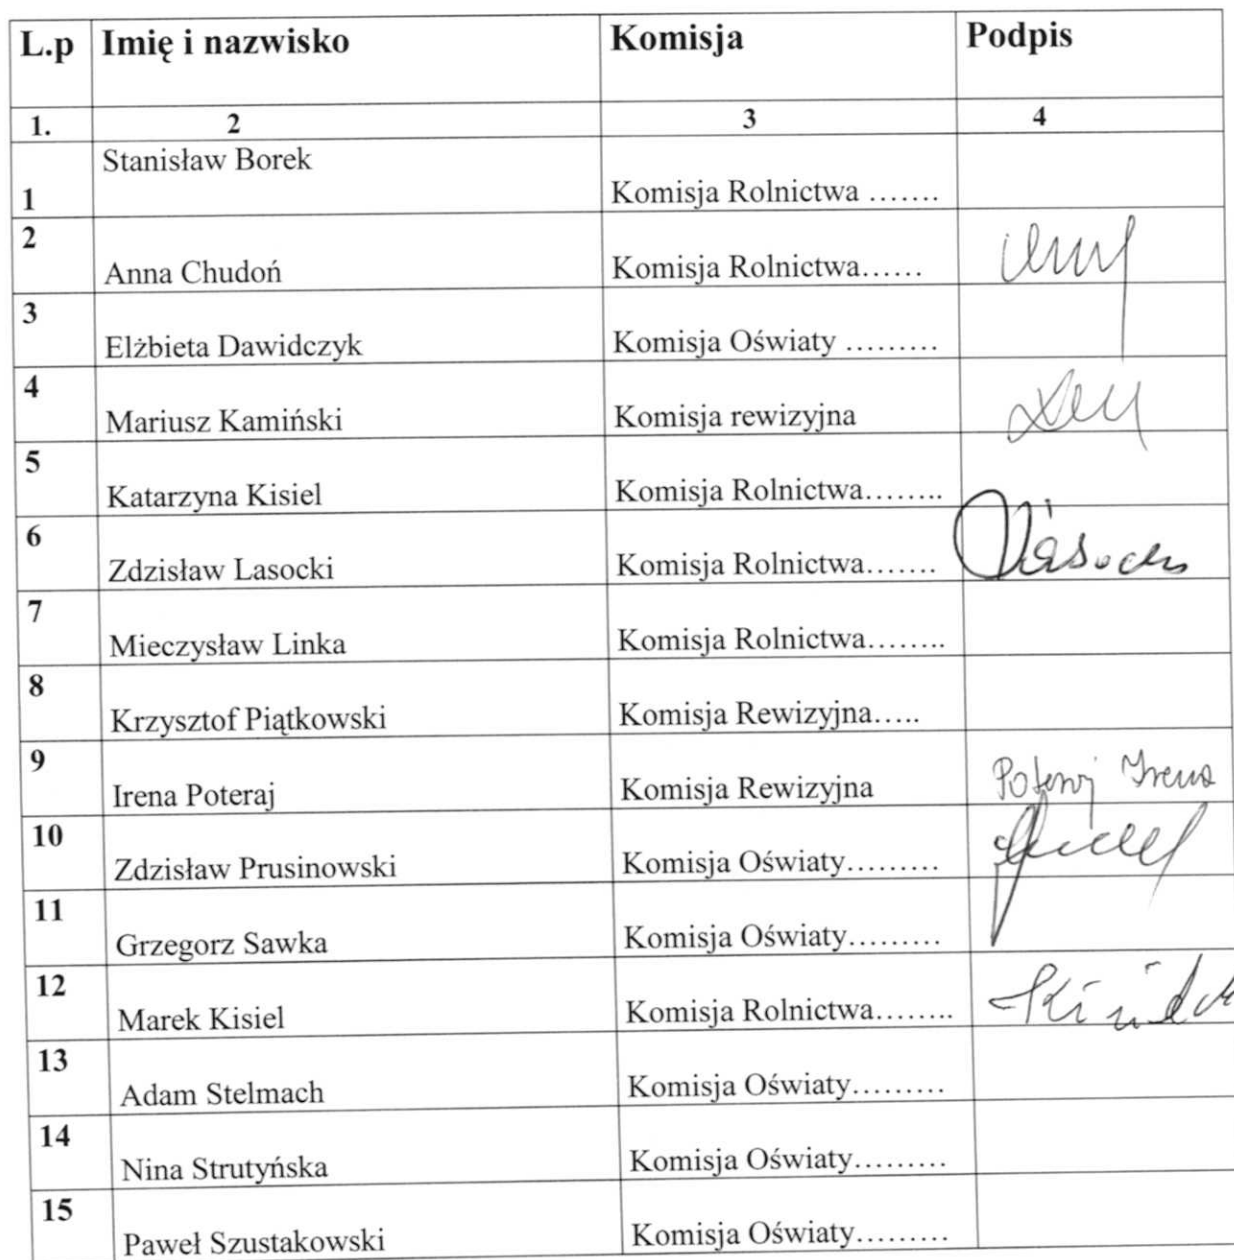 L.p Imię i nazwisko Komisja Podpis
1. 2 3 4
1 Stanisław Borek Komisja Rolnictwa .......
2 Anna Chudoń Komisja Rolnictwa......
3 Elżbieta Dawidczyk Komisja Oświaty .........
4 Mariusz Kamiński Komisja rewizyjna
5 Katarzyna Kisiel Komisja Rolnictwa........
6 Zdzisław Lasocki Komisja Rolnictwa.......
7 Mieczysław Linka Komisja Rolnictwa........
8 Krzysztof Piątkowski Komisja Rewizyjna.....
9 Irena Poteraj Komisja Rewizyjna Poteraj Irena
10 Zdzisław Prusinowski Komisja Oświaty.........
11 Grzegorz Sawka Komisja Oświaty.........
12 Marek Kisiel Komisja Rolnictwa........
13 Adam Stelmach Komisja Oświaty.........
14 Nina Strutyńska Komisja Oświaty.........
15 Paweł Szustakowski Komisja Oświaty.........